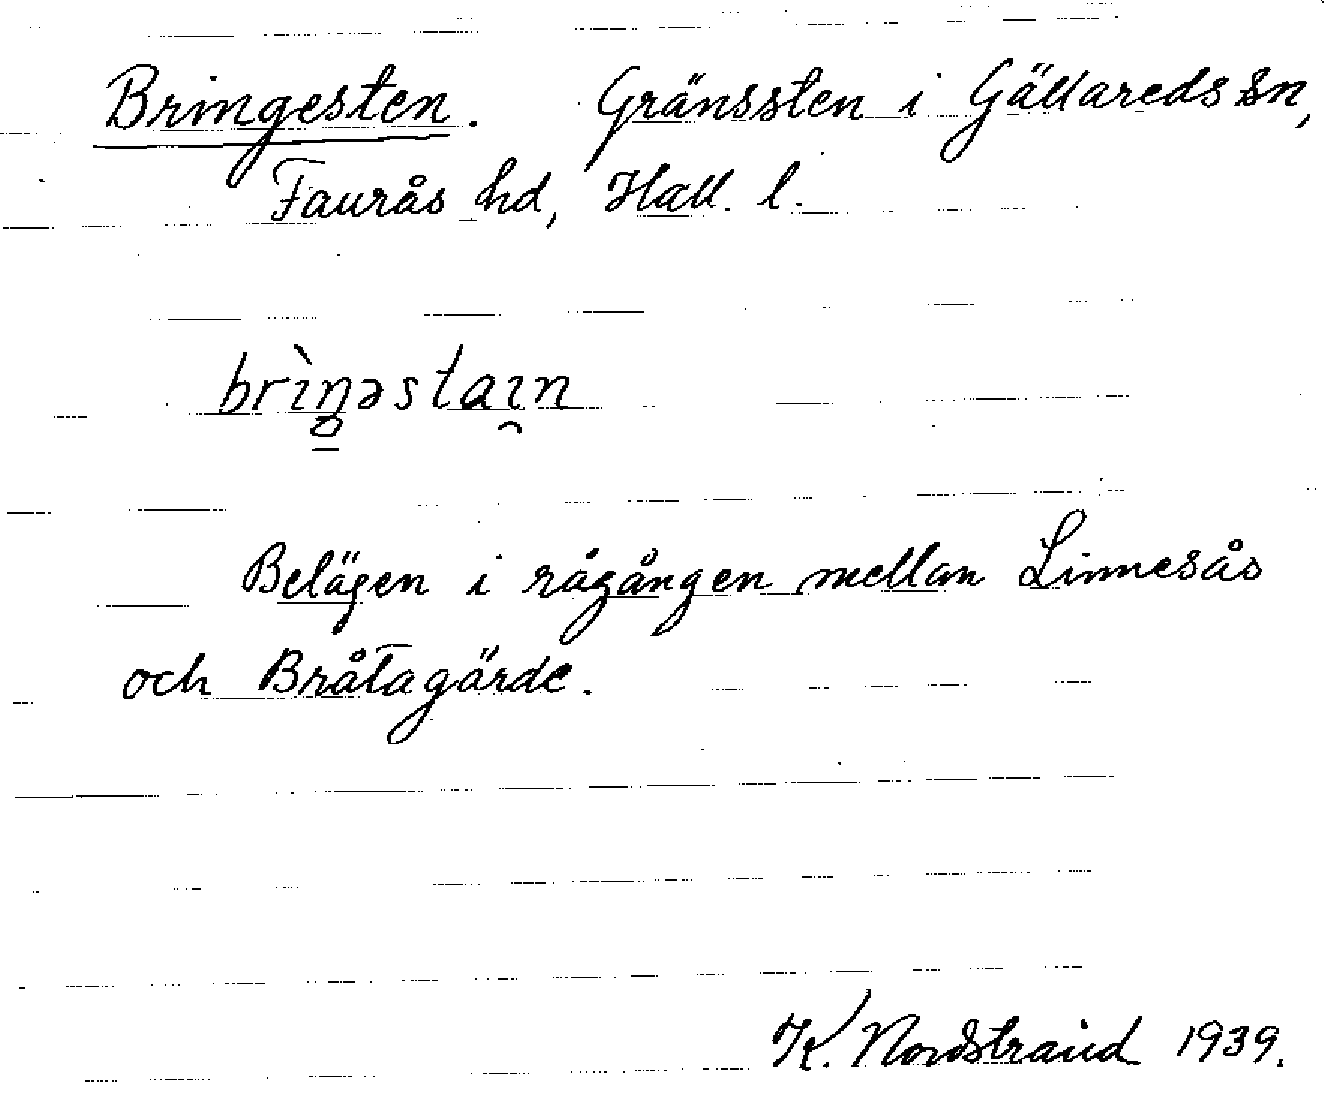 Bringesten. Gränssten i Gällareds sn,
Faurås hd, Hall. l.
brìŋ̥̲əstaı̯n
Belägen i rågången mellan Linnesås
och Bråtagärde.
K. Nordstrand 1939.